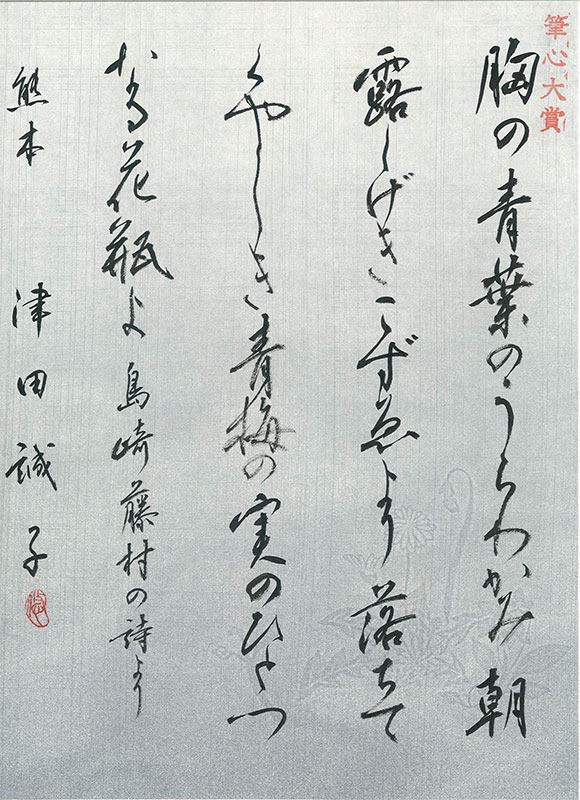 筆心大賞
胸の青葉のうらわかみ朝
露しげきこずゑより落ちて
くやしき青梅の実のひとつ
なる花瓶よ 島崎藤村の詩より
熊本 津田誠子